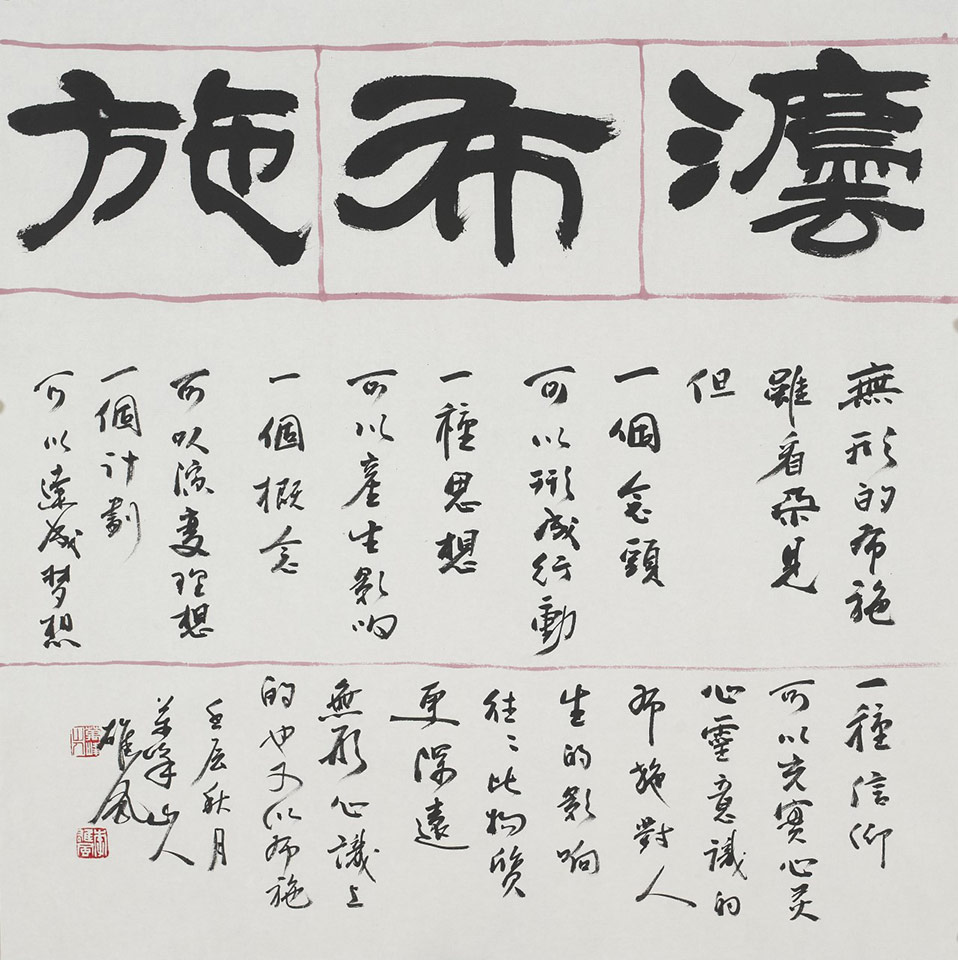 灋布施
無形的布施
雖看不見
但
一個念頭
可以形成行動
一種思想
可以產生影响
一個概念
可以演变理想
一個计劃
可以達成梦想
一種信仰
可以充實心灵
心靈意識的
布施對人
生的影响
往〻比物質
更深遠
無形心識上
的也可以布施
壬辰秋月
峰山人
雄風